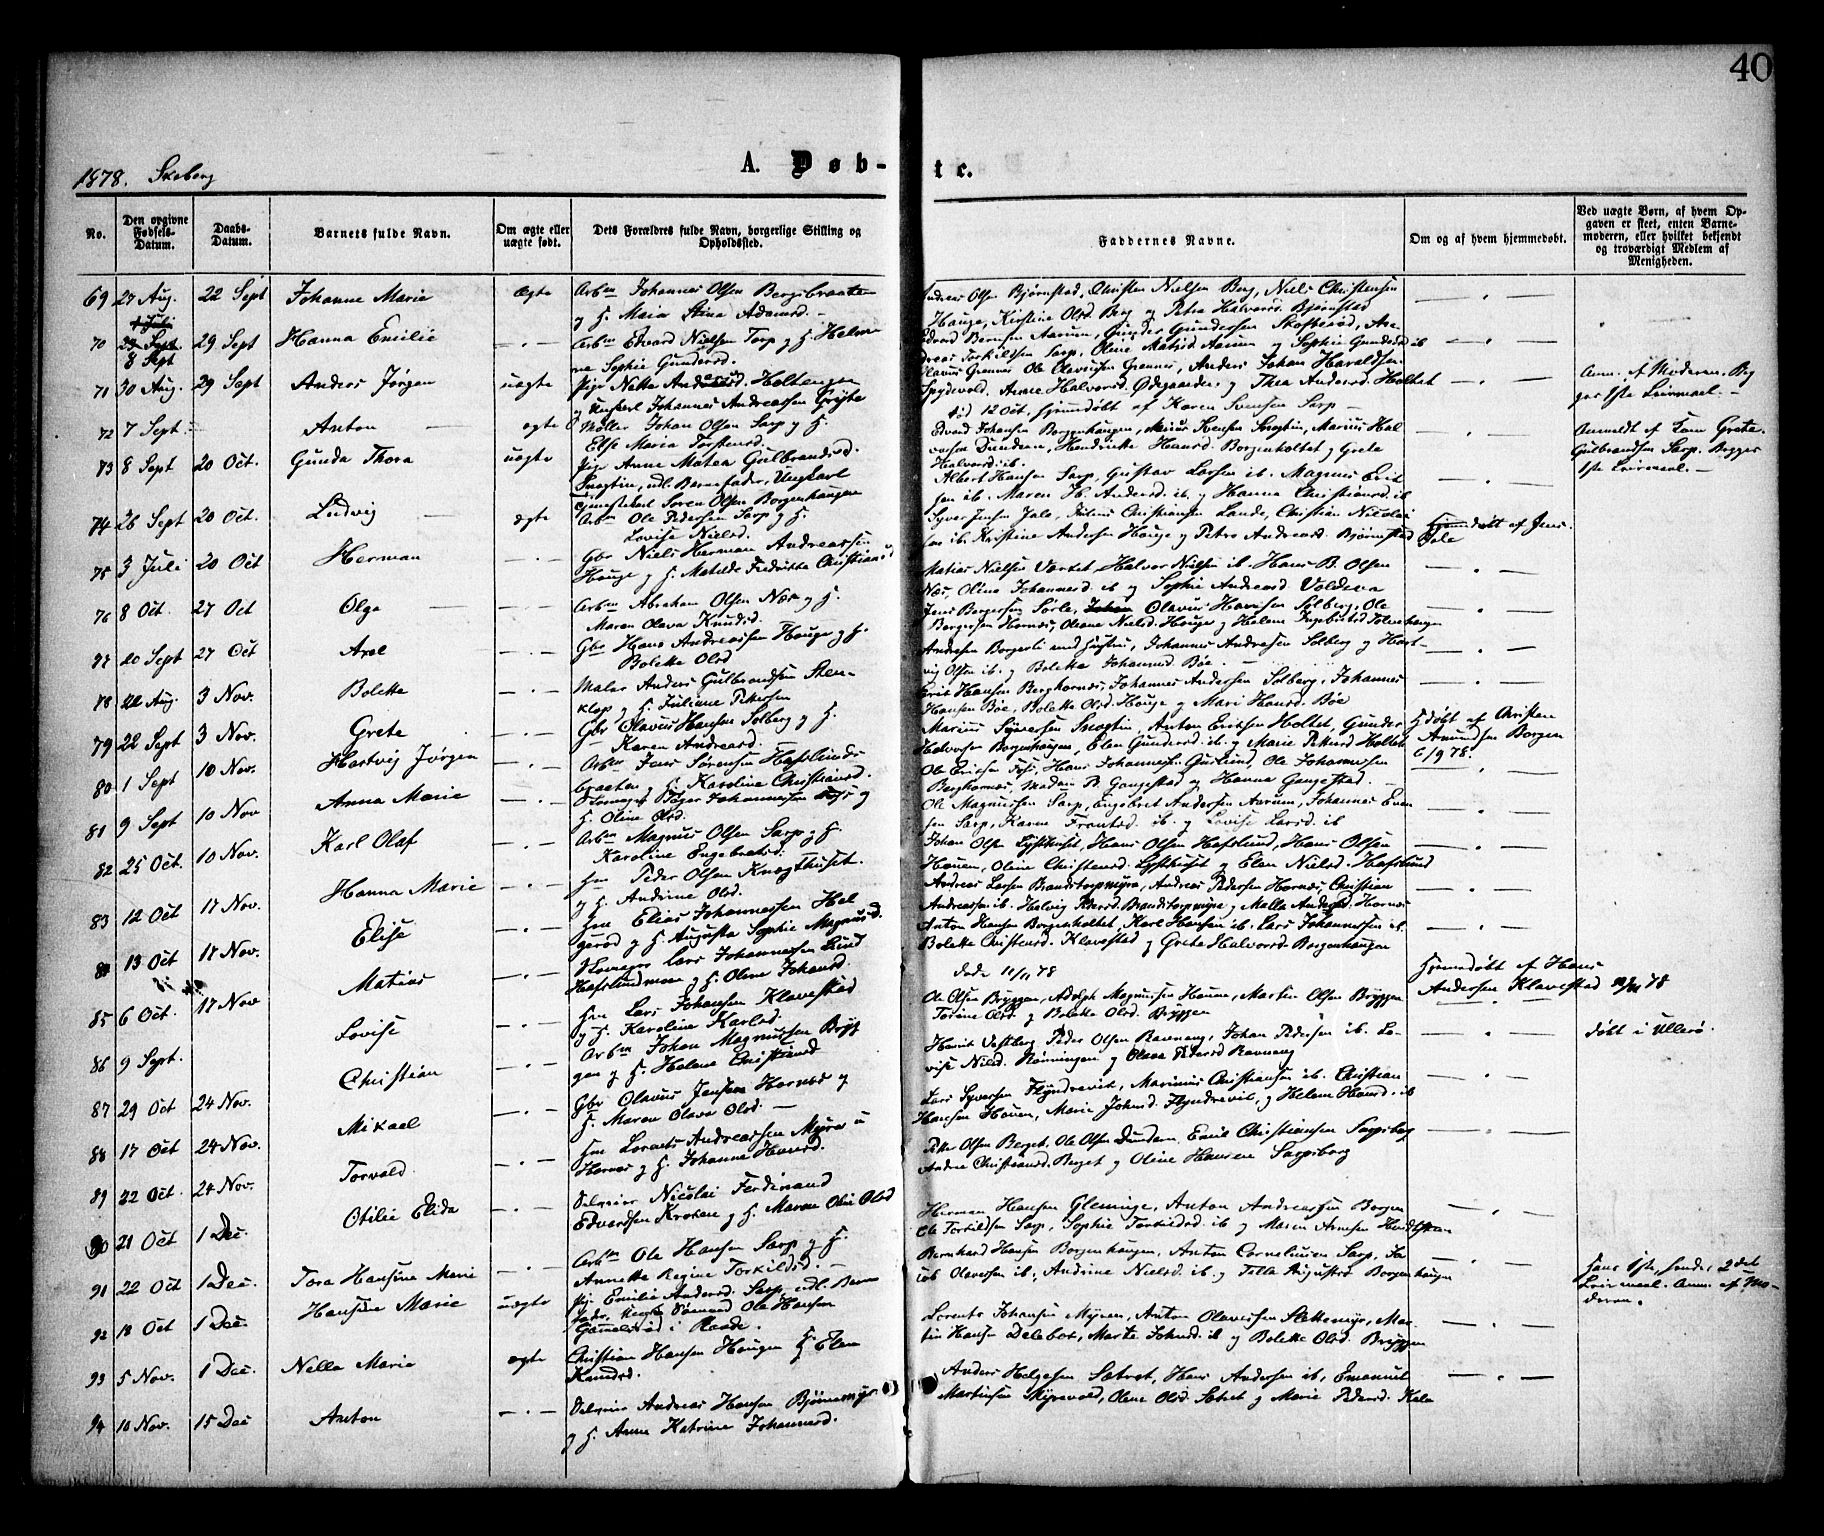 40
1878. Skeberg
A. Døb-te.
No.
Den opgivne Fødsels-Datum.
Daabs-Datum.
Barnets fulde Navn.
Om ægte eller uægte født.
Dets Forældres fulde Navn, borgerlige Stilling og Opholdssted.
Faddernes Navne.
Om og af hvem hjemmedøbt.
Ved uægte Børn, af hvem Opgaven er skeet, enten Barnemoderen, eller hvilket bekjendt og troværdigt Medlem af Menigheden.
69 27 Aug. 22 Sept Johanne Marie ægte Arbm Johannes Olsen Bergsbraaten
g H. Maria Stina Adamsd. —
Andreas Olsen Bjørnstad, Christen Nielsen Berg, Niels Christensen
Hauge, Kirstine Olsd. Berg og Petra Halvorsd. Bjørnstad
70 8 Sept 29 Sept Hanna Emilie — Arbm Edvard Nielsen Torp g H. Helene
Sophie Gundersd.
Edvard Berntsen Aarum, Gunder Gundersen Skofterød, Andreas
Torkildsen Sarp, Oline Matisd Aarum og Sophie Gundersd ib
71 30 Aug. 29 Sept Anders Jørgen uægte Pige Nette Andersd. Holtengen
g Ungkarl Johannes Andreassen Grejte
Olavus Grønnes Ole Olavussen Grønnes, Anders Johan Haraldsen
Spydevold, Anne Halvorsd. Ødegaarden g Thea Andersd. Holtet
Anm. af Moderen. Begges 1ste Leiermaal. —
72 7 Sept. Anton — ægte Møller Johan Olsen Sarp g H.
Else Maria Torstensd.
død 12 Oct. hjemmedøbt af Karen Svensen Sarp —
73 8 Sept 20 Oct. Gunda Thora uægte Pige Anne Matea Gulbrandsd.
udl. Barnefader, Ungkarl
Søren Olsen Borgenhaugen
Edvard Johansen Borgenhaugen, Marius Hansen Snogtin, Marius Halvorsen
Dundern, Hendrikke Hansd. Borgenholtet g Grete
Halvorsd. ib.
Anmeldt af
Gulbrandsen Sarp. Begges
1ste Leiermaal. —
74 26 Sept 20 Oct. Ludvig — ægte Arbm Ole Pedersen Sarp g H.
Lovise Nielsd.
Albert Hansen Sarp, Gustav Larsen ib. Magnus Eriksen
ib. Maren H. Andersd. ib. g Hanna Christiansd. ib
75 3 Juli 20 Oct Herman — Gbr Niels Herman Andreassen
Hauge g H. Matilde Fredrikke Christiansd
Syver Jensen Jale, Julius Christiansen Lande, Christian Nicolaisen
ib. Kristine Andersen Hauge g Petra Andreasd. Bjørnstad
Hjemdøbt af Jens
Jale
76 8 Oct. 27 Oct Olga — Arbm Abraham Olsen Næs g H.
Maren Olava Knudsd.
Matias Nielsen Værtet, Halvor Nielsen ib. Hans B. Olsen
Næs, Oline Johannesd. ib g Sophie Andreasd. Voldeva
77 20 Sept 27 Oct Axel Gbr Hans Andreassen Hauge g H.
Bolette Olsd.
Jens Borgersen Sørlie, Olavus Hansen Solberg, Ole
Borgersen Hornæs, Oleane Nielsd. Hauge g Helene Ingebretsd
78 22 Aug. 3 Nov. Bolette Maler Anders Gulbrandsen Stenklop
g H. Juliane Petersen
Andreas Borgerli med Hustru, Johannes Andersen Solberg g Hartvig
Olsen ib. g Bolette Johannesd. Bøe. —
79 22 Sept 3 Nov. Grete Gbr Olavus Hansen Solberg g H.
Karen Andreasd.
Erik Hansen Berghornæs, Johannes Andersen Solberg, Johannes
Hansen Bøe, Bolette Olsd. Hauge g Mari Hansd. Bøe
80 1 Sept 10 Nov. Hartvig Jørgen Arbm Jens Sørensen Hafslundsbraaten
g H. Karoline Christiansd.
Marius Syversen Snogtin, Anton Eriksen Holtet, Gunder
Halvorsen Borgenhaugen, Elen Gundersd. ib. g Marie Pedersd Holtet
Hdøbt af Christen
Amundsen Borgen
6/9 78.
81 9 Sept 10 Nov Anna Marie Borger Johannesen g
H. Oline Olsd.
Ole Eriksen, Hans Johannessen, Ole Johannessen
Berghornæs, Madam B. Gangestad og Hanna Gangestad
82 25 Oct. 10 Nov. Karl Olaf Arbm Magnus Olsen Sarp g H.
Karoline Engebretsd.
Ole Magnussen Sarp, Engebret Andersen Aarum, Johannes Evensen
Sarp, Karen Frantsd. ib. g Lovise Larsd. ib
83 12 Oct 17 Nov. Hanna Marie Hm Peder Olsen Knægthuset.
g H. Andrine Olsd.
Johan Olsen Lysthuset, Hans Olsen Hafslund, Hans Olsen
Hauen, Oline Christensd. Lysthuset g Elen Nielsd. Hafslund
84 13 Oct 17 Nov. Elise Hm Elias Johannessen Helgerød
g H. Augusta Sophie Magnusd.
Andreas Larsen Brandstorpmyra, Andreas Pedersen Hornæs, Christian
Andreassen ib. Helvig Pedersd. Brandstorpmyra g Malla Andersd. Hornæs
85 6 Oct. 17 Nov Matias Lars Johannessen Lund
Hafslundmoen g H. Oline Johansd.
Anton Hansen Borgenholtet, Karl Hansen ib. Lars Johannessen ib.
Bolette Christensd. Klavestad g Grete Halvorsd. Borgenhaugen
86 9 Sept. Lovise Hm Lars Johansen Klavestad
g H. Karoline Karlsd.
døde 11/11 78
Hjemmedøbt af Hans
Andersen Klavestad 78
87 29 Oct 24 Nov. Christian Arbm Johan Magnussen Bryggen
g H. Helene Christiansd
Ole Olsen Bryggen, Adolph Magnussen Hauen, Martin Olsen Bryggen
Torine Olsd. g Bolette Olsd. Bryggen
88 17 Oct 24 Nov. Mikael Gbr Olavus Jensen Hornæs g
H. Maren Olava Olsd. —
Henrik Vestberg Peder Olsen Ravneng, Johan Pedersen ib. Lovise
Nilsd. Rønningen g Olava Petersd Ravneng
døbt i Ullerø.
89 22 Oct. 24 Nov. Torvald Hm Lorents Andreassen Myra u
Hornæs g H. Johanne Hansd.
Lars Syversen Flyndrevik, Marinius Christiansen ib. Christian
Hansen Hauen, Marie Johnsd. Flyndrevik, g Helene Hansd. ib
90 21 Oct 1 Dec. Otilie Elida Selveier Nicolai Ferdinand
Edvardsen Kroken g H. Maren Olsd
Peter Olsen Berget, Ole Olsen Dundern, Emil Christiansen Sarpsborg
Andrea Christiansd. Berget g Oline Hansen Sarpsborg
91 22 Oct 1 Dec. Tora Hansine Marie Arbm Ole Hansen Sarp g H.
Annette Regine Torkildsd. —
Herman Hansen Gleminge, Anton Andreassen Borgen
Ole Torkildsen Sarp, Sophie Torkildsd. ib g Maren Arnesen
92 18 Oct 1 Dec. Hansine Marie uægte Pige Emilie Andersd. Sarp, udl. Barnefader,
Sømand Ole Hansen
Gammelsrød i Raade.
Bernhard Hansen Borgenhaugen, Anton Corneliusen Sarp, Jacob
Olavessen ib., Andrine Nielsd. ib. g Tilla Augustsd Borgenhaugen
hans 1ste, hendes 2det
Leiermaal. Anm. af Moderen.
93 5 Nov. 1 Dec. Nella Marie ægte Christian Hansen Haugen H Elen
Knudsd.
Lorents Johansen Myren, Anton Olavessen Slettemyr, Martin
Hansen Delebet, Marte Johnsd. ib g Bolette Olsd. Bryggen
94 10 Nov. 15 Dec Anton Selveier Andreas Hansen Bjørnemyr
g H. Anne Katrine Johannesd.
Anders Helgesen Sætret, Hans Andersen ib, Emanuel
Martinsen Myrevold, Olene Olsd Sætret g Marie Pedersd. Kala